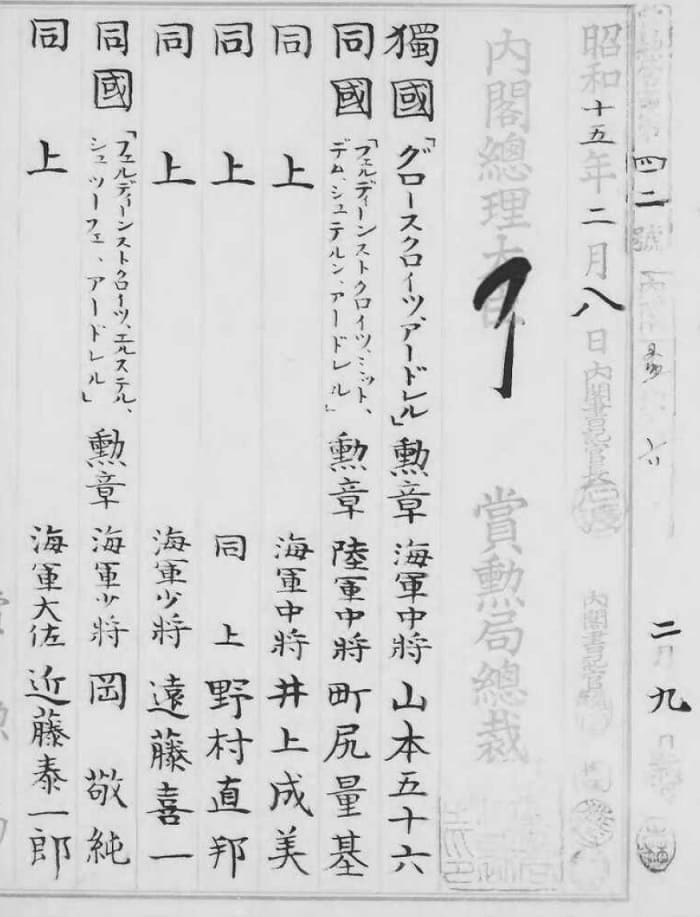 四二號
二 九
昭和十五年二月八日 內閣書記官長 內閣書記官
內閣總理大臣 賞勲局總裁
獨國「グロースクロイツ、アードレル」勲章 海軍中將 山本五十六
同國「フェルディーンストクロイツ、ミット、
デム、シュテルン、アードレル」勲章 陸軍中將 町尻量基
同 上 海軍中將 井上成美
同 上 同 上 野村直邦
同 上 海軍少將 遠藤喜一
同國「フェルディーンストクロイツ、エルステル、
シュツーフェ、アードレル」勲章 海軍少將 岡 敬純
同 上 海軍大佐 近藤泰一郎